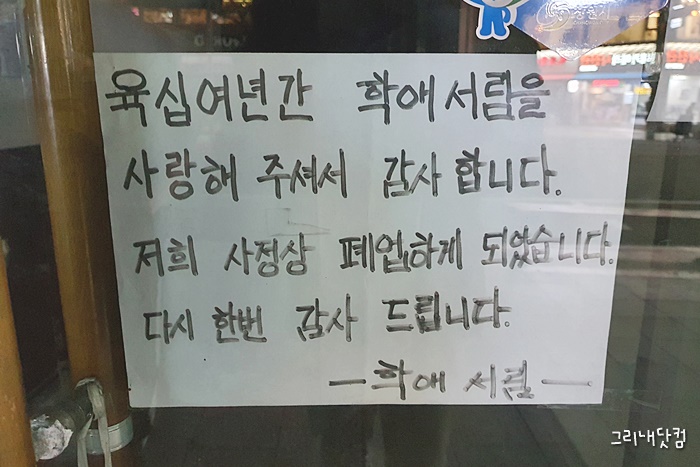 육십여년간 학애서림을
사랑해 주셔서 감사합니다.
저희 사정상 폐업하게 되었습니다.
다시 한번 감사 드립니다.
— 학애 서림 —
그리내닷컴